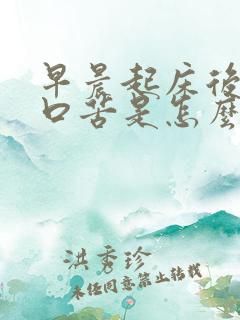 早晨起床後
口苦是怎麼
洪秀珍
未经同意禁止转载